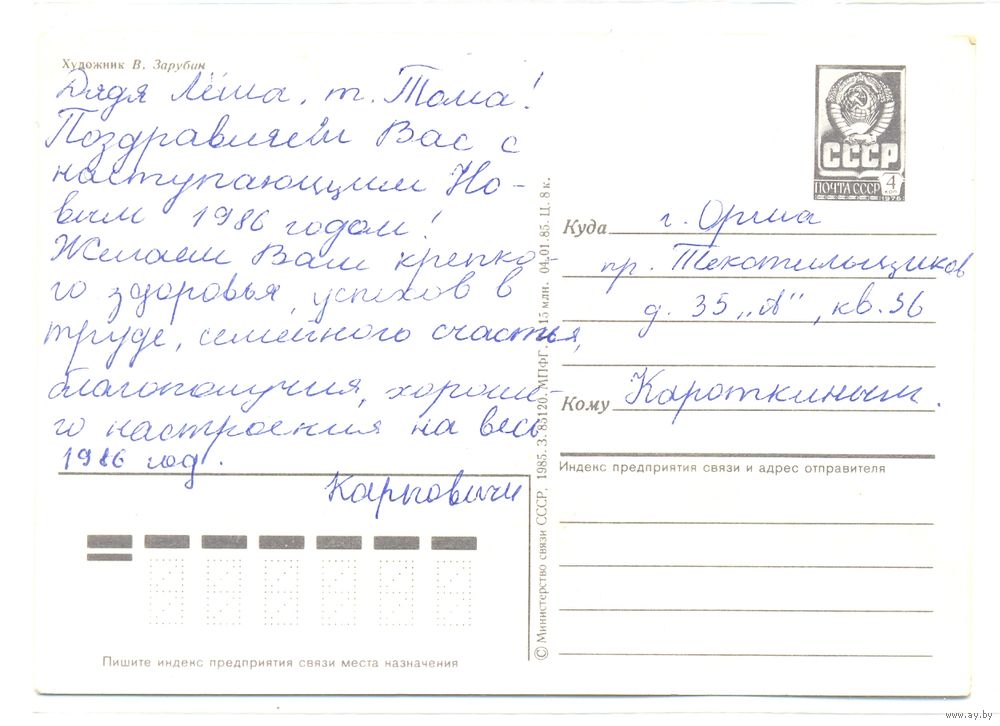 Художник В. Зарубин
Дядя Лёша, т. Тома!
Поздравляем Вас с
наступающим Но-
вым 1986 годом!
Желаем Вам крепко-
го здоровья, успехов в
труде, семейного счастья,
благополучия, хороше-
го настроения на весь
1986 год.
Карповичи
Пишите индекс предприятия связи места назначения
© Министерство связи СССР. 1985. З. 85120. МПФГ. 15 млн. 04.01.85. Ц. 8 к.
СССР
ПОЧТА СССР
4
КОП
1976
Куда г. Орша
пр. Текстильщиков
д. 35 „А", кв. 36
Кому Кароткиным.
Индекс предприятия связи и адрес отправителя
www.ay.by